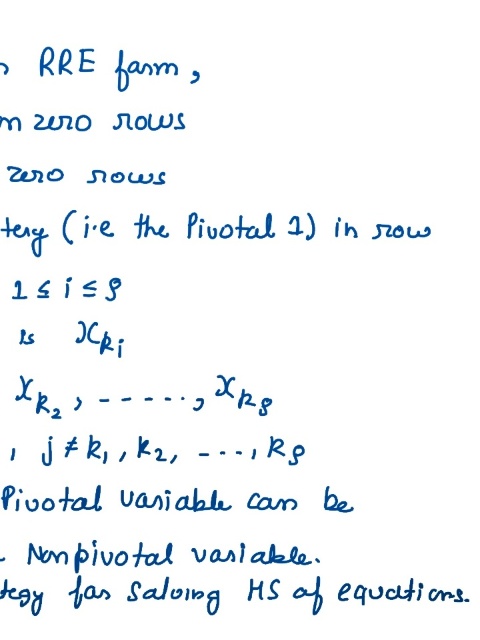 RRE form,
n zero rows
zero rows
tery (i.e the Pivotal 1) in row
1 ≤ i ≤ ρ
is x_{k_i}
x_{k_2}, -----, x_{k_ρ}
, j ≠ k_1, k_2, ---, k_ρ
Pivotal variable can be
Nonpivotal variable.
tegy for Solving HS of equations.